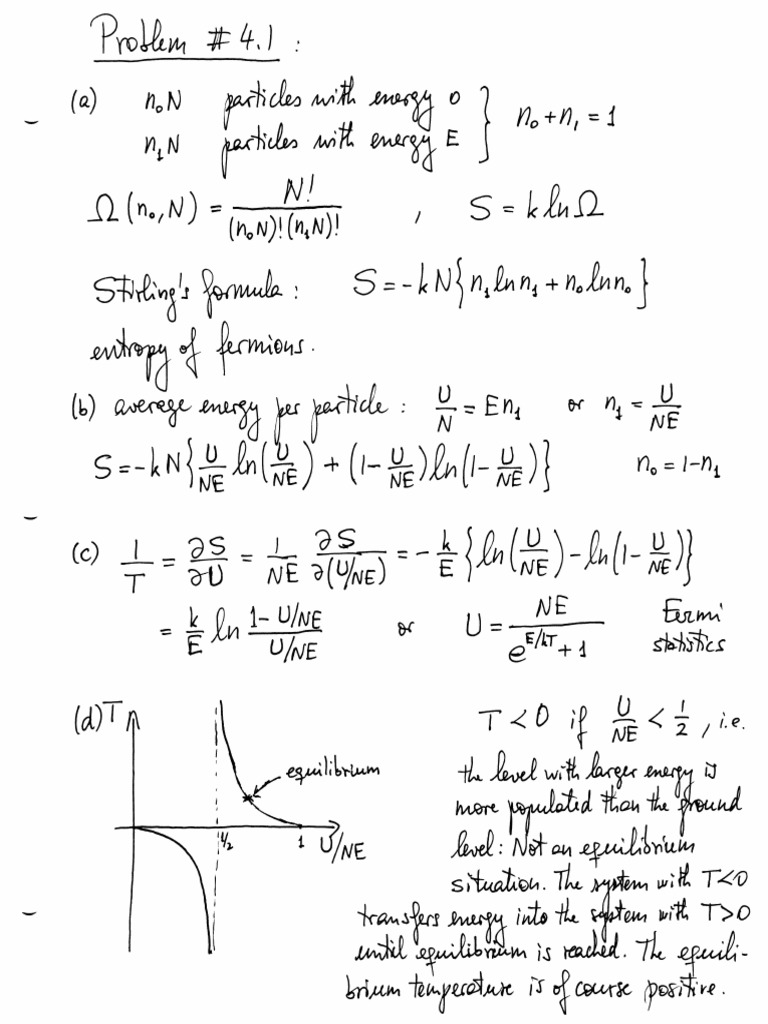 Problem # 4.1 :
(a) n₀N particles with energy 0
n₁N particles with energy E } n₀+n₁ = 1
Ω(n₀,N) = N! / (n₀N)!(n₁N)! , S = k ln Ω
Stirling's formula : S = -kN{n₁ ln n₁ + n₀ ln n₀}
entropy of fermions.
(b) average energy per particle : U/N = En₁ or n₁ = U/NE
S = -kN{U/NE ln(U/NE) + (1-U/NE) ln(1-U/NE)} n₀ = 1-n₁
(c) 1/T = ∂S/∂U = 1/NE ∂S/∂(U/NE) = -k/E {ln(U/NE) - ln(1-U/NE)}
= k/E ln (1-U/NE)/(U/NE) or U = NE/(e^(E/kT) + 1) Fermi
statistics
(d) T
equilibrium
1/2 1 U/NE
T < 0 if U/NE < 1/2 , i.e.
the level with larger energy is
more populated than the ground
level : Not an equilibrium
situation. The system with T<0
transfers energy into the system with T>0
until equilibrium is reached. The equili-
brium temperature is of course positive.